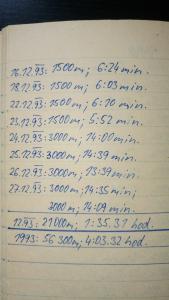 16.12.93: 1500m; 6:24 min.
18.12.93: 1500m; 6:03 min.
22.12.93: 1500m; 6:10 min.
23.12.93: 1500m; 5:52 min.
24.12.93: 3000m; 14:00 min.
25.12.93: 3000m; 14:39 min.
26.12.93: 3000m; 13:39 min.
27.12.93: 3000m; 14:35 min;
3000m; 14:09 min.
12.93: 21000m; 1:35.31 hod.
1993: 56 300m; 4:03.32 hod.